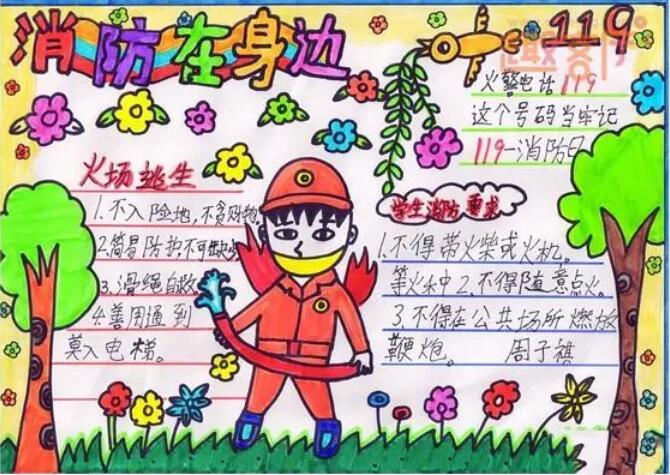 消防在身边
119
火警电话119
这个号码当牢记
119-消防日
火场逃生
1.不入险地,不贪财物。
2.简易防护,不可缺少
3.滑绳自救
4.善用通到
莫入电梯。
学生消防要求
1.不得带火柴或火机。
等火种2.不得随意点火。
3.不得在公共场所燃放
鞭炮。 周子祺